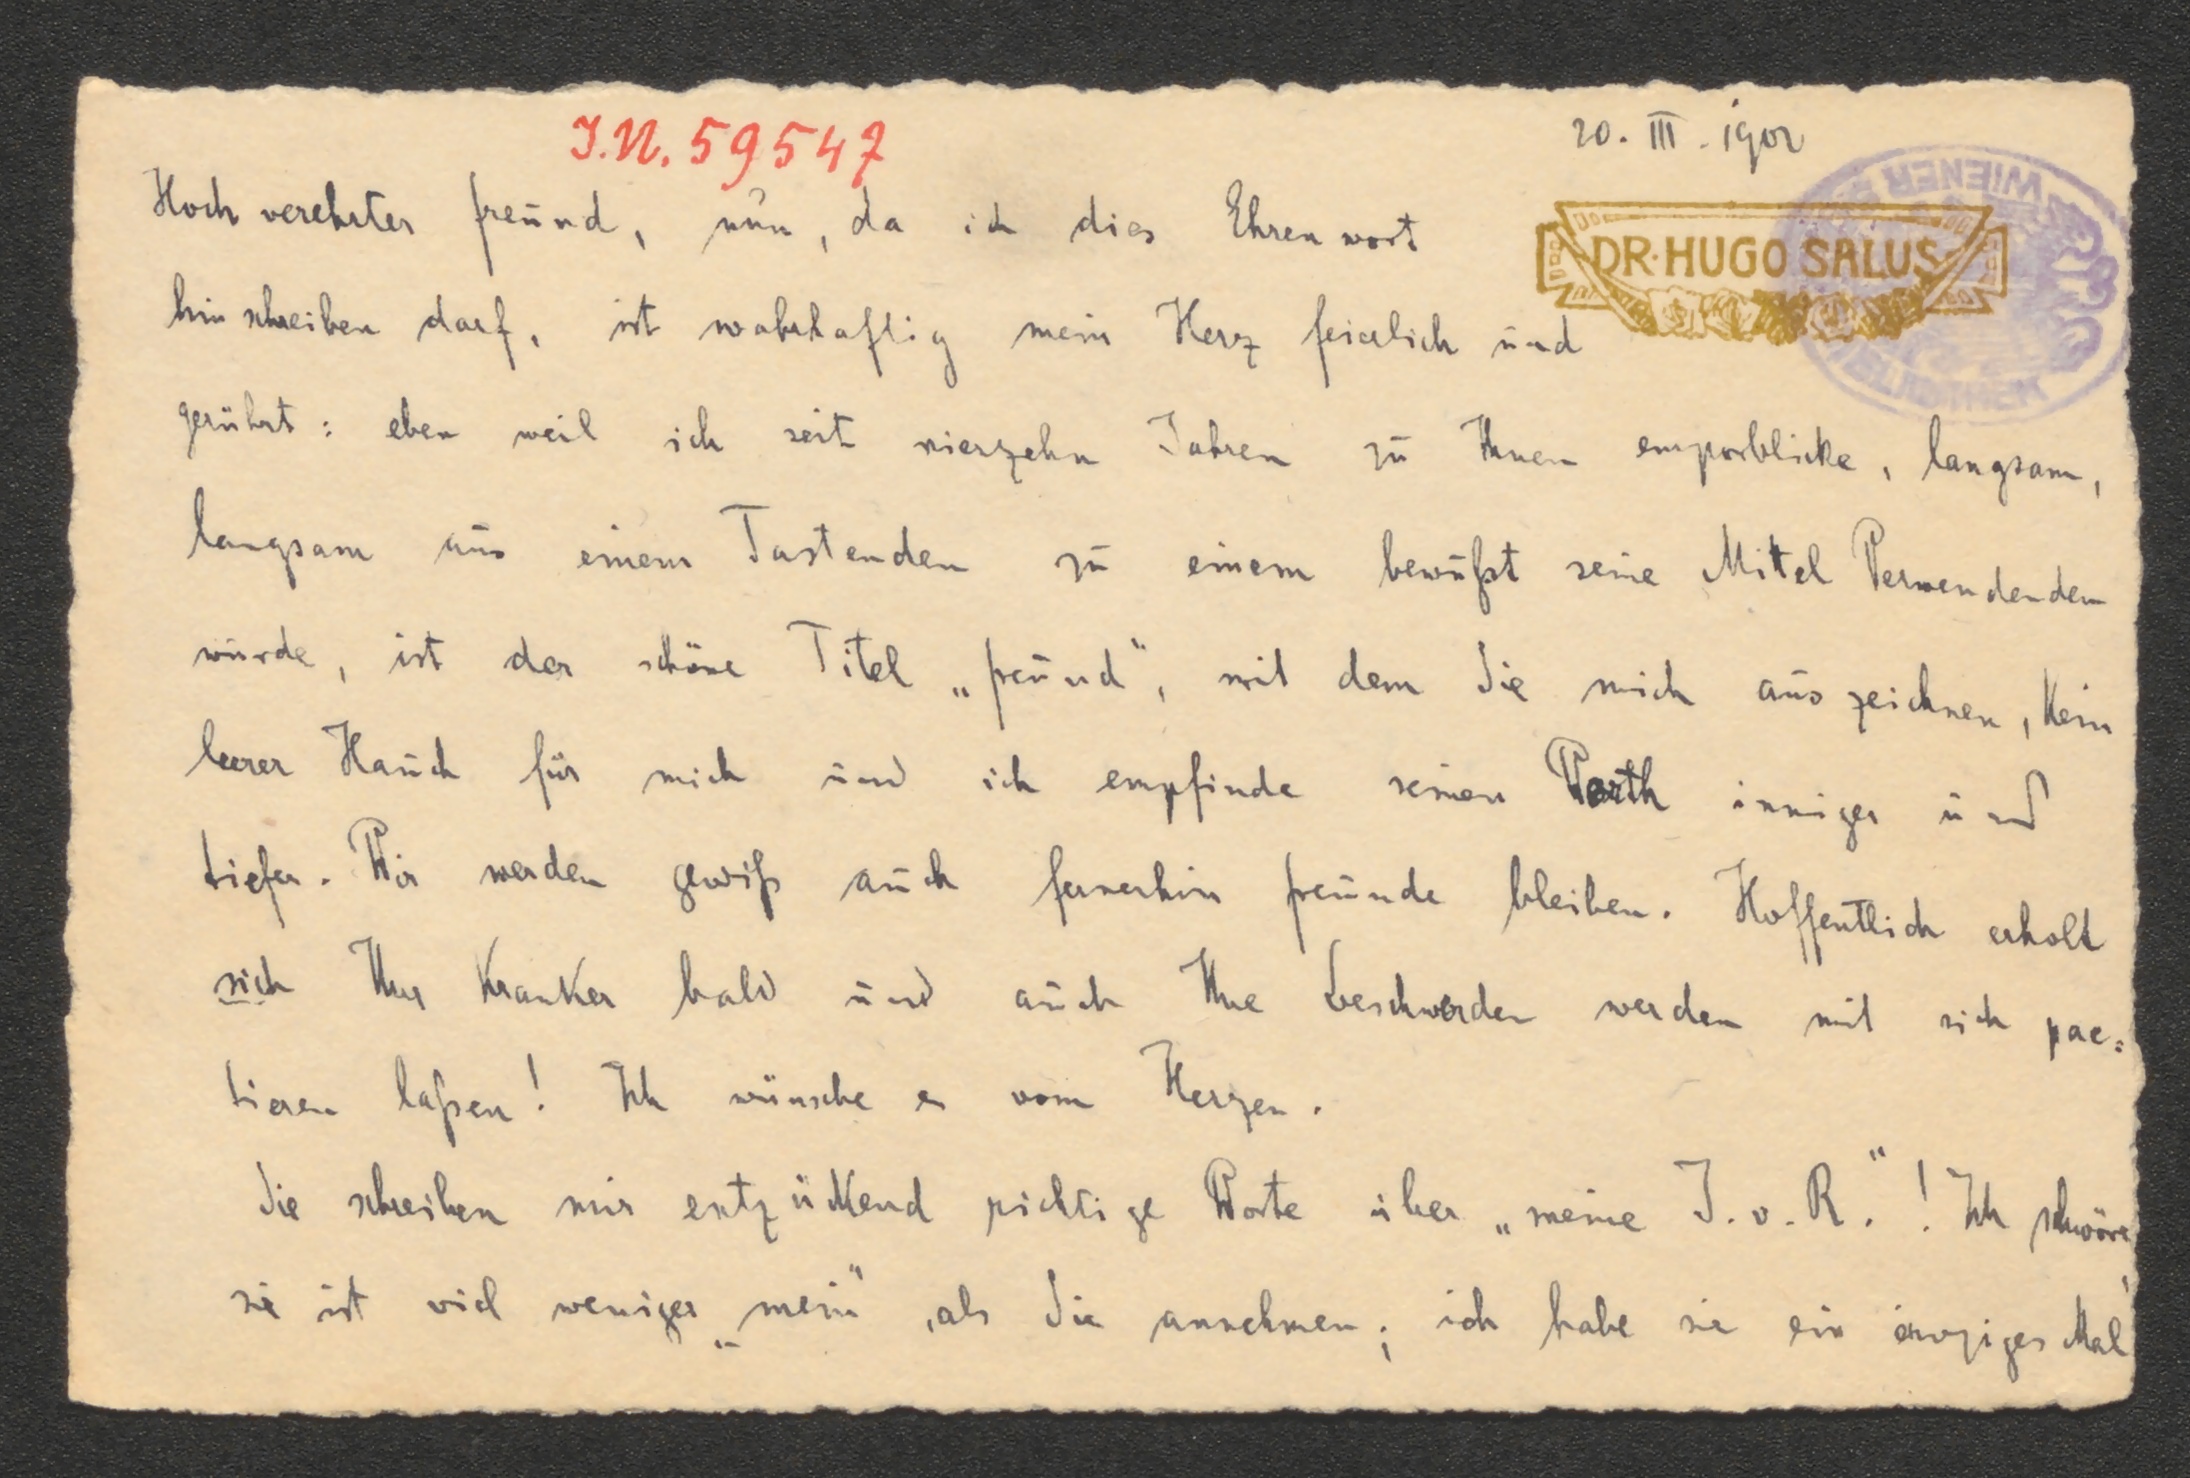 I.N. 59547
20. III. 1902
DR. HUGO SALUS
WIENER
BIBLIOTHEK
Hochverehrter Freund, nun, da ich dies Ehrenwort
hinschreiben darf, ist wahrhaftig mein Herz feierlich und
gerührt: eben weil ich seit vierzehn Jahren zu Ihnen emporblicke, langsam,
langsam aus einem Tastenden zu einem bewußt seine Mittel Verwendenden
wurde, ist der schöne Titel „Freund“, mit dem Sie mich auszeichnen, kein
leerer Hauch für mich und ich empfinde seinen Werth inniger und
tiefer. Wir werden gewiß auch fernerhin Freunde bleiben. Hoffentlich erholt
sich Ihr Kranker bald und auch Ihre Beschwerden werden mit sich pac=
tieren laßen! Ich wünsche es vom Herzen.
Sie schreiben mir entzückend richtige Worte über „meine I. v. R.“! Ich schwöre,
sie ist viel weniger „mein“, als Sie annehmen; ich habe sie ein einziges Mal